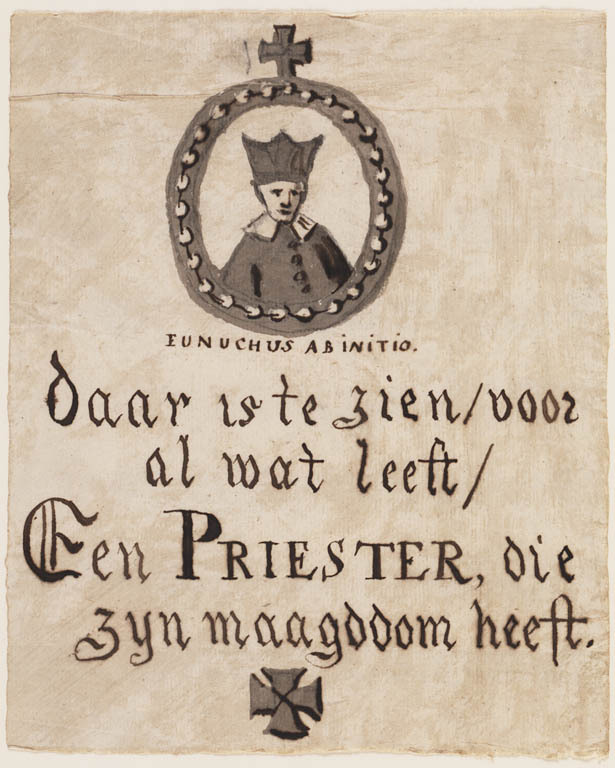 EUNUCHUS AB INITIO.
Daar is te zien/voor
al wat leeft/
Een PRIESTER, die
zyn maagddom heeft.